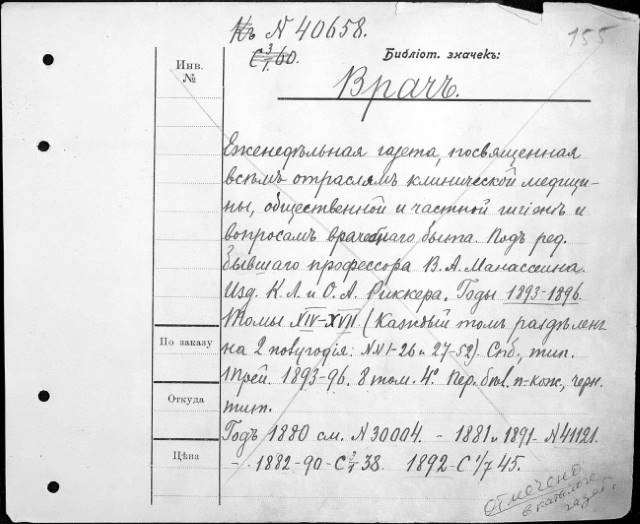 Къ N 40658.
С 3/1. 60.
155
Инв.
№
Библіот. значекъ:
Врачъ.
Еженедѣльная газета, посвященная
всѣмъ отраслямъ клинической медици-
ны, общественной и частной гигіены и
вопросамъ врачебнаго быта. Подъ ред.
бывшаго профессора В. А. Манассеина.
Изд. К. Л. и О. А. Риккера. Годы 1893-1896.
Томы XIV-XVII (Каждый томъ раздѣленъ
на 2 полугодія: NN1-26 и 27-52). Спб., тип.
По заказу
Трей. 1893-96. 8 том. 4°. Пер. бѣл. п-кож., черн.
Откуда
тит.
Годъ 1880 см. N 30004. - 1881 и 1891 - N 41121.
Цѣна
- 1882-90 - С 3/1 38. 1892 - С 1/7 45.
отмечено
в каталоге
газет.